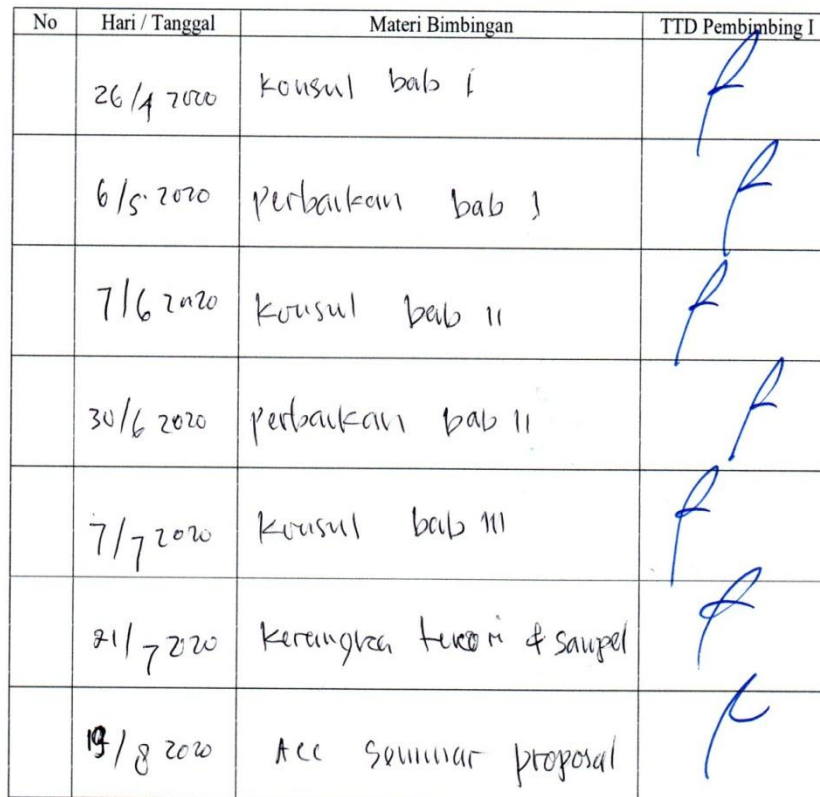 No Hari / Tanggal Materi Bimbingan TTD Pembimbing I
26/4 2020 konsul bab I
6/5 2020 perbaikan bab I
7/6 2020 konsul bab II
30/6 2020 perbaikan bab II
7/7 2020 konsul bab III
21/7 2020 kerangka teori & sampel
19/8 2020 Acc seminar proposal